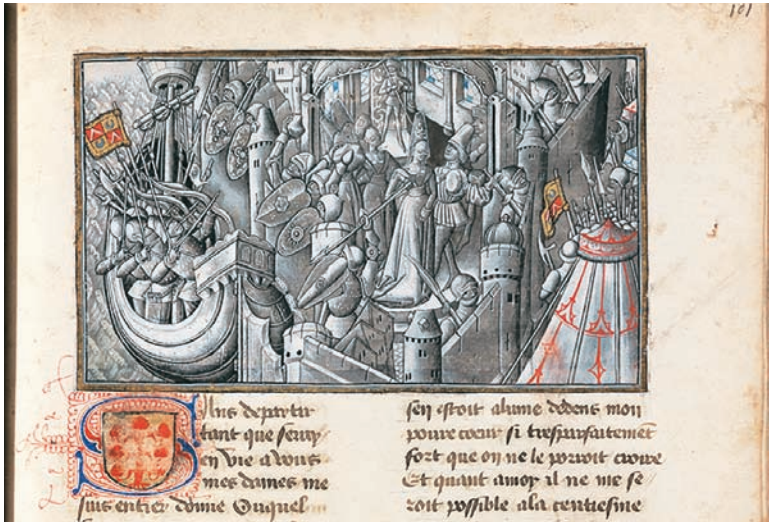 101
Sans departir
tant que seray
en vie a vous
mes dames me
suis entier donne Duquel
sen estoit alume dedens mon
poure coeur si tresparfaitement
fort que on ne le porroit croire
Et quant amoy il ne me se
roit possible ala centiesme